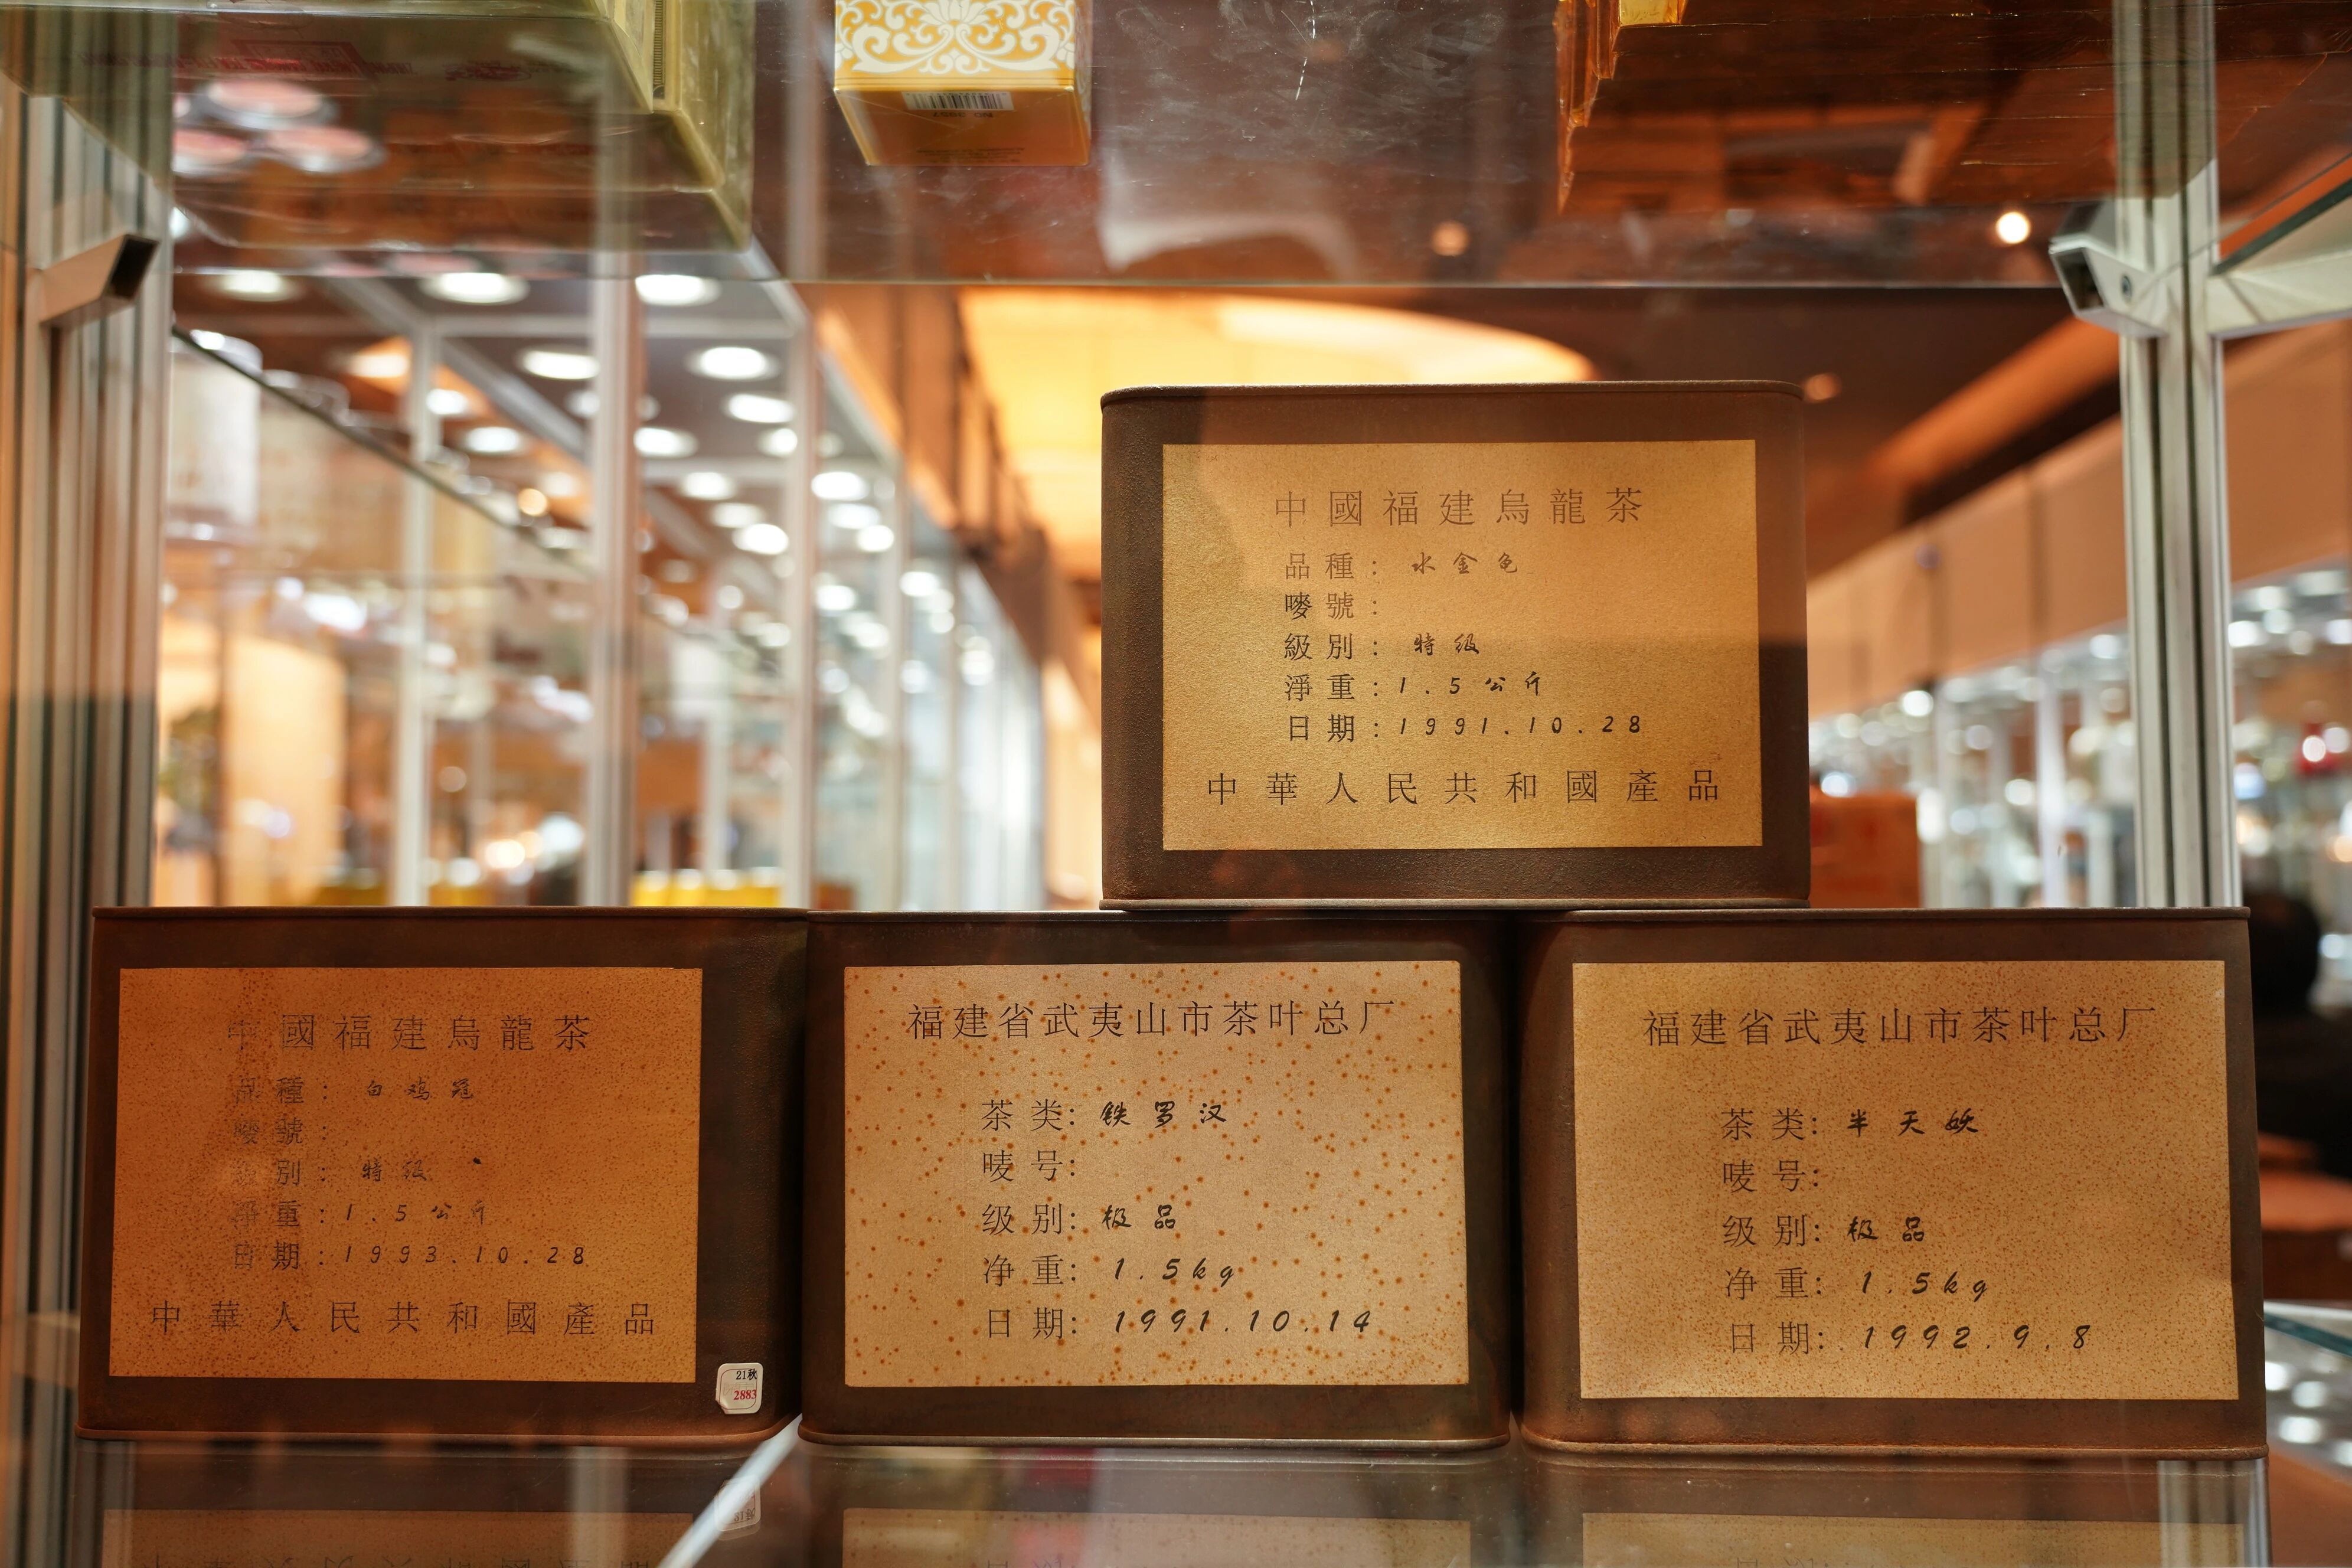 中國福建烏龍茶
品種：水金龟
嘜號：
級別：特级
淨重：1.5公斤
日期：1991.10.28
中華人民共和國產品
中國福建烏龍茶
品種：白鸡冠
嘜號：
級別：特级
淨重：1.5公斤
日期：1993.10.28
中華人民共和國產品
21秋
2883
福建省武夷山市茶叶总厂
茶类：铁罗汉
唛号：
级别：极品
净重：1.5kg
日期：1991.10.14
福建省武夷山市茶叶总厂
茶类：半天妖
唛号：
级别：极品
净重：1.5kg
日期：1992.9.8